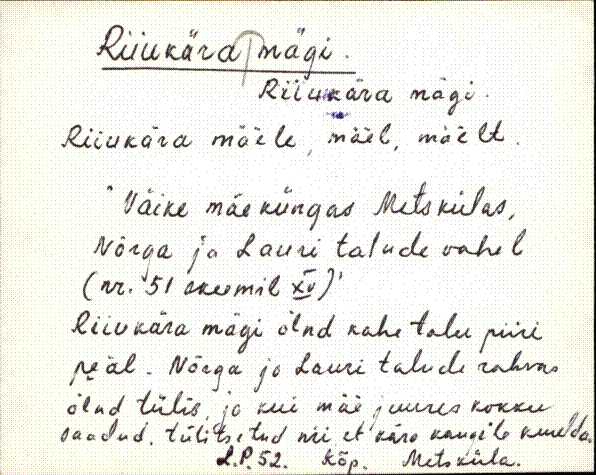 Riiukära mägi.
Riiukära mägi.
Riiukära mäele, mäel, mäelt.
"Väike mäeküngas Metskülas,
Nõrga ja Lauri talude vahel
(nr. 51 skeemil XV)"
Riiukära mägi õlnd kahe talu piiri
peäl. Nõrga ja Lauri talude rahvas
õlnd tülis, ja kui mäe juures kokku
saadud, tülitsetud nii et kära kaugile kuulda.
L.P. 52. Kõp. Metsküla.